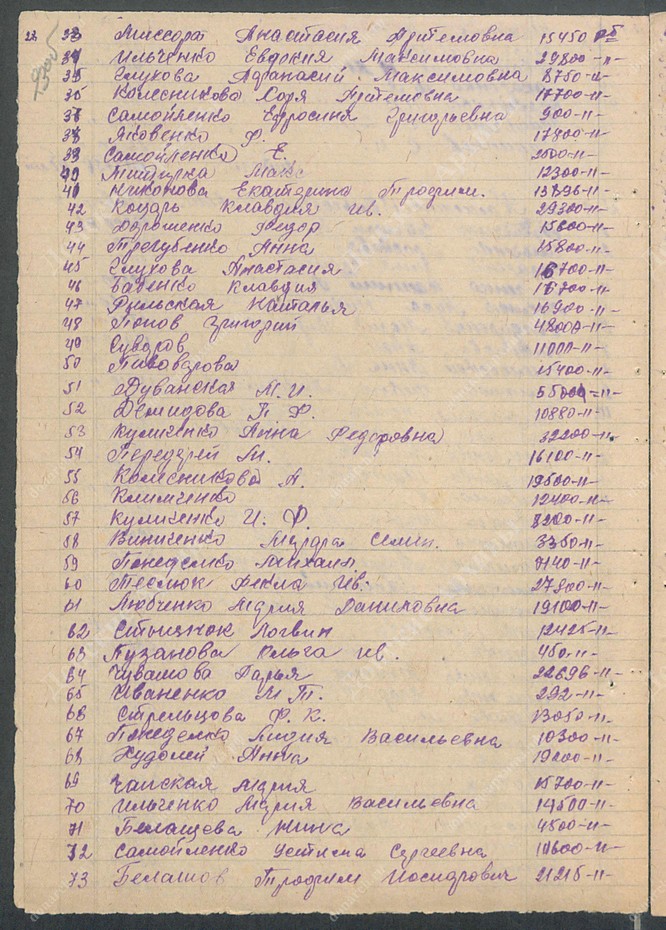 33 Миссора Анастасия Артемовна 15450 рб
34 Ильченко Евдокия Максимовна 29800-"-
35 Глухова Афанасий Максимовна 8750-"-
35 Колесникова Дарья Артемовна 17700-"-
36 Самойленко Ефросиня Григорьевна 900-"-
38 Яковенко Ф. 17800-"-
39 Самойленко Е. 2500-"-
40 Макс 12300-"-
40 Никонова Екатерина Трофим. 13896-"-
42 Коцарь Клавдия Ив. 29300-"-
43 Дорошенко Федор 15600-"-
44 Анна 15800-"-
45 Глухова Анастасия 16700-"-
46 Баченко Клавдия 16700-"-
47 Рульская Наталья 16900-"-
48 Попов Григорий 48000-"-
49 Суворов 11000-"-
50 Пивоварова 15400-"-
51 Дуванская М. И. 55000-"-
52 Демидова П. Ф. 10880-"-
53 Куличенко Анна Федоровна 32200-"-
54 М. 16100-"-
55 Колесникова А. 19500-"-
56 Климченко 12400-"-
57 Куличенко И. Ф. 8200-"-
58 Винниченко Семен. 3350-"-
59 Понеделко Михаил 9140-"-
60 Теслюк Фекла Ив. 27800-"-
61 Любченко Мария Даниловна 19100-"-
62 Логвин 12425-"-
63 Пузанова Ольга Ив. 450-"-
64 Чувашова Дарья 22696-"-
65 Иваненко М. Т. 292-"-
66 Стрельцова Ф. К. 13050-"-
67 Понеделко Лидия Васильевна 10300-"-
68 Худолей Анна 19200-"-
69 Чайская Мария 15700-"-
70 Ильченко Мария Васильевна 14500-"-
71 Белашева Нина 4500-"-
72 Самойленко Устина Сергеевна 10600-"-
73 Белашов Трофим Иосифович 21215-"-